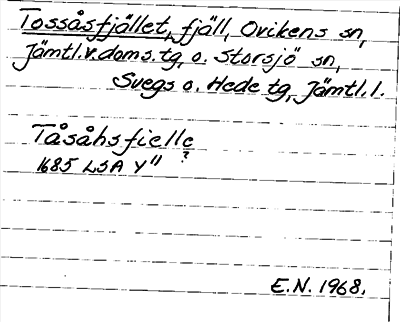 Tossåsfjället, fjäll, Ovikens sn,
Jämtl.v.doms.tg, o. Storsjö sn,
Svegs o. Hede tg, Jämtl.l.
Tåsåhsfielle
?
1685 LSA Y"
E.N. 1968.